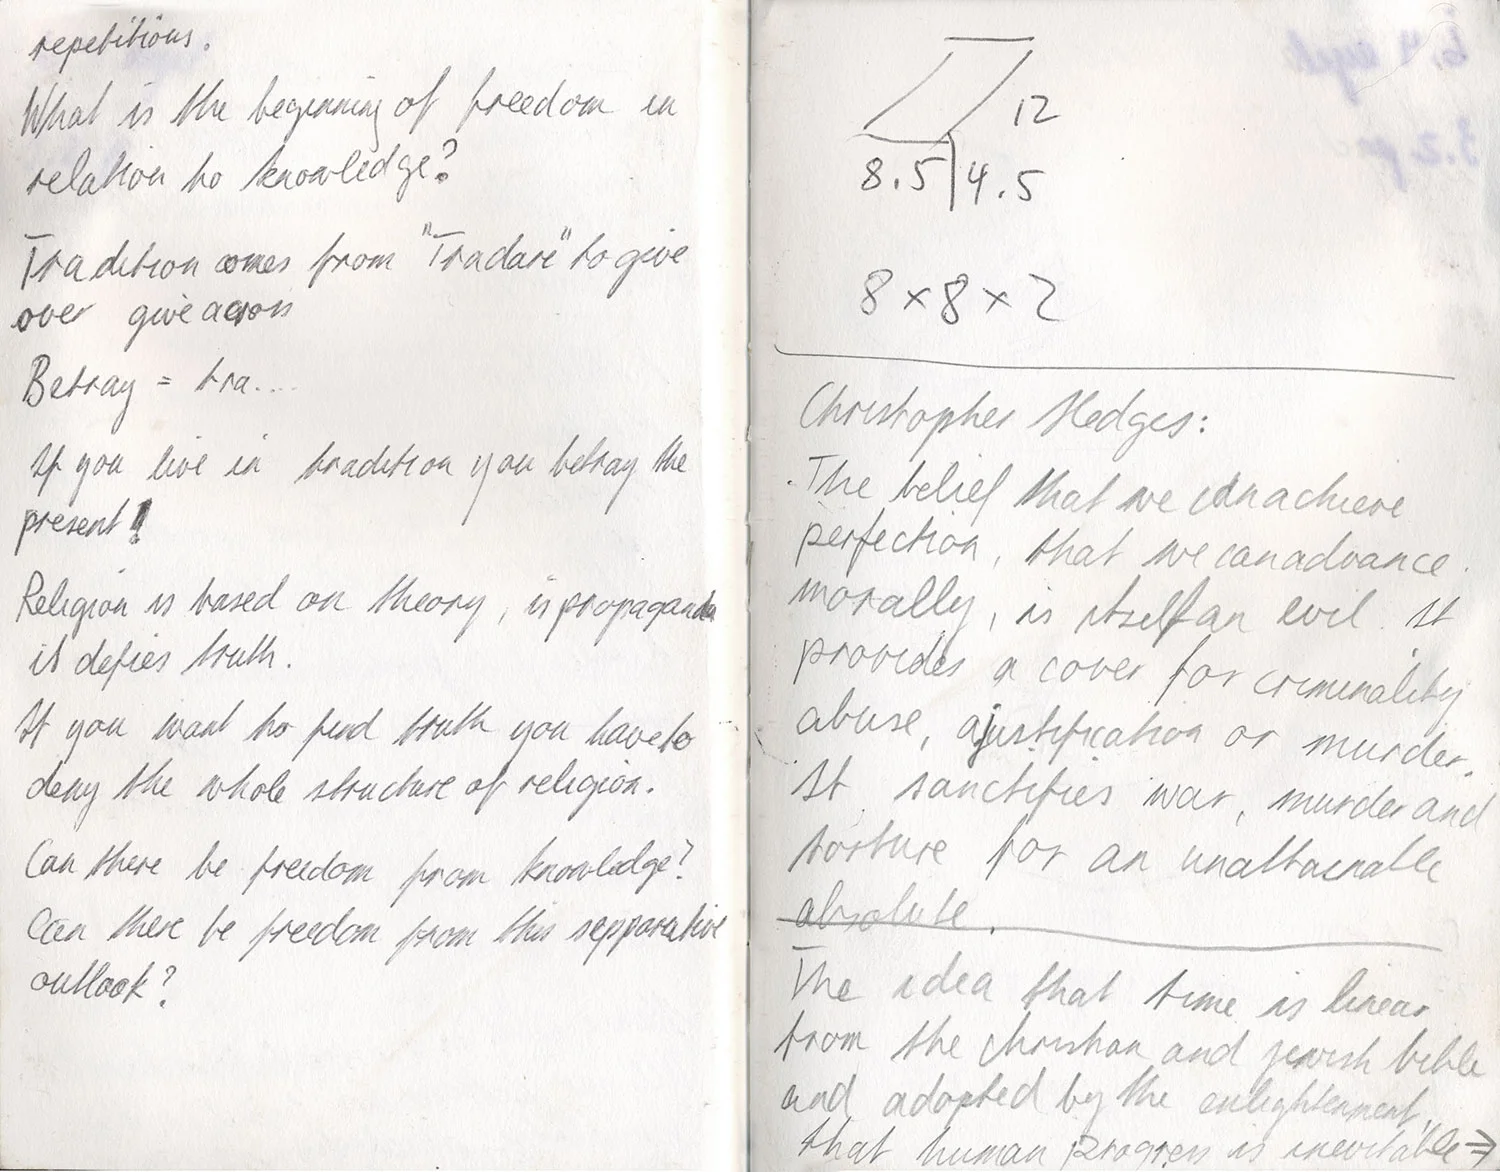 repetitions.
What is the beginning of freedom in
relation to knowledge?
Tradition comes from "Tradare" to give
over give across
Betray = tra....
If you live in tradition you betray the
present!
Religion is based on theory, is propaganda
it defies truth.
If you want to find truth you have to
deny the whole structure of religion.
Can there be freedom from knowledge?
Can there be freedom from this sepparative
outlook?
12
8.5 | 4.5
8 x 8 x 2
Christopher Hedges:
The belief that we can achieve
perfection, that we can advance
morally, is itself an evil. It
provides a cover for criminality
abuse, a justification or murder.
It sanctifies war, murder and
torture for an unattainable
absolute.
The idea that time is linear
from the christian and jewish bible
and adopted by the enlightenment,
that human progress is inevitable ⇒